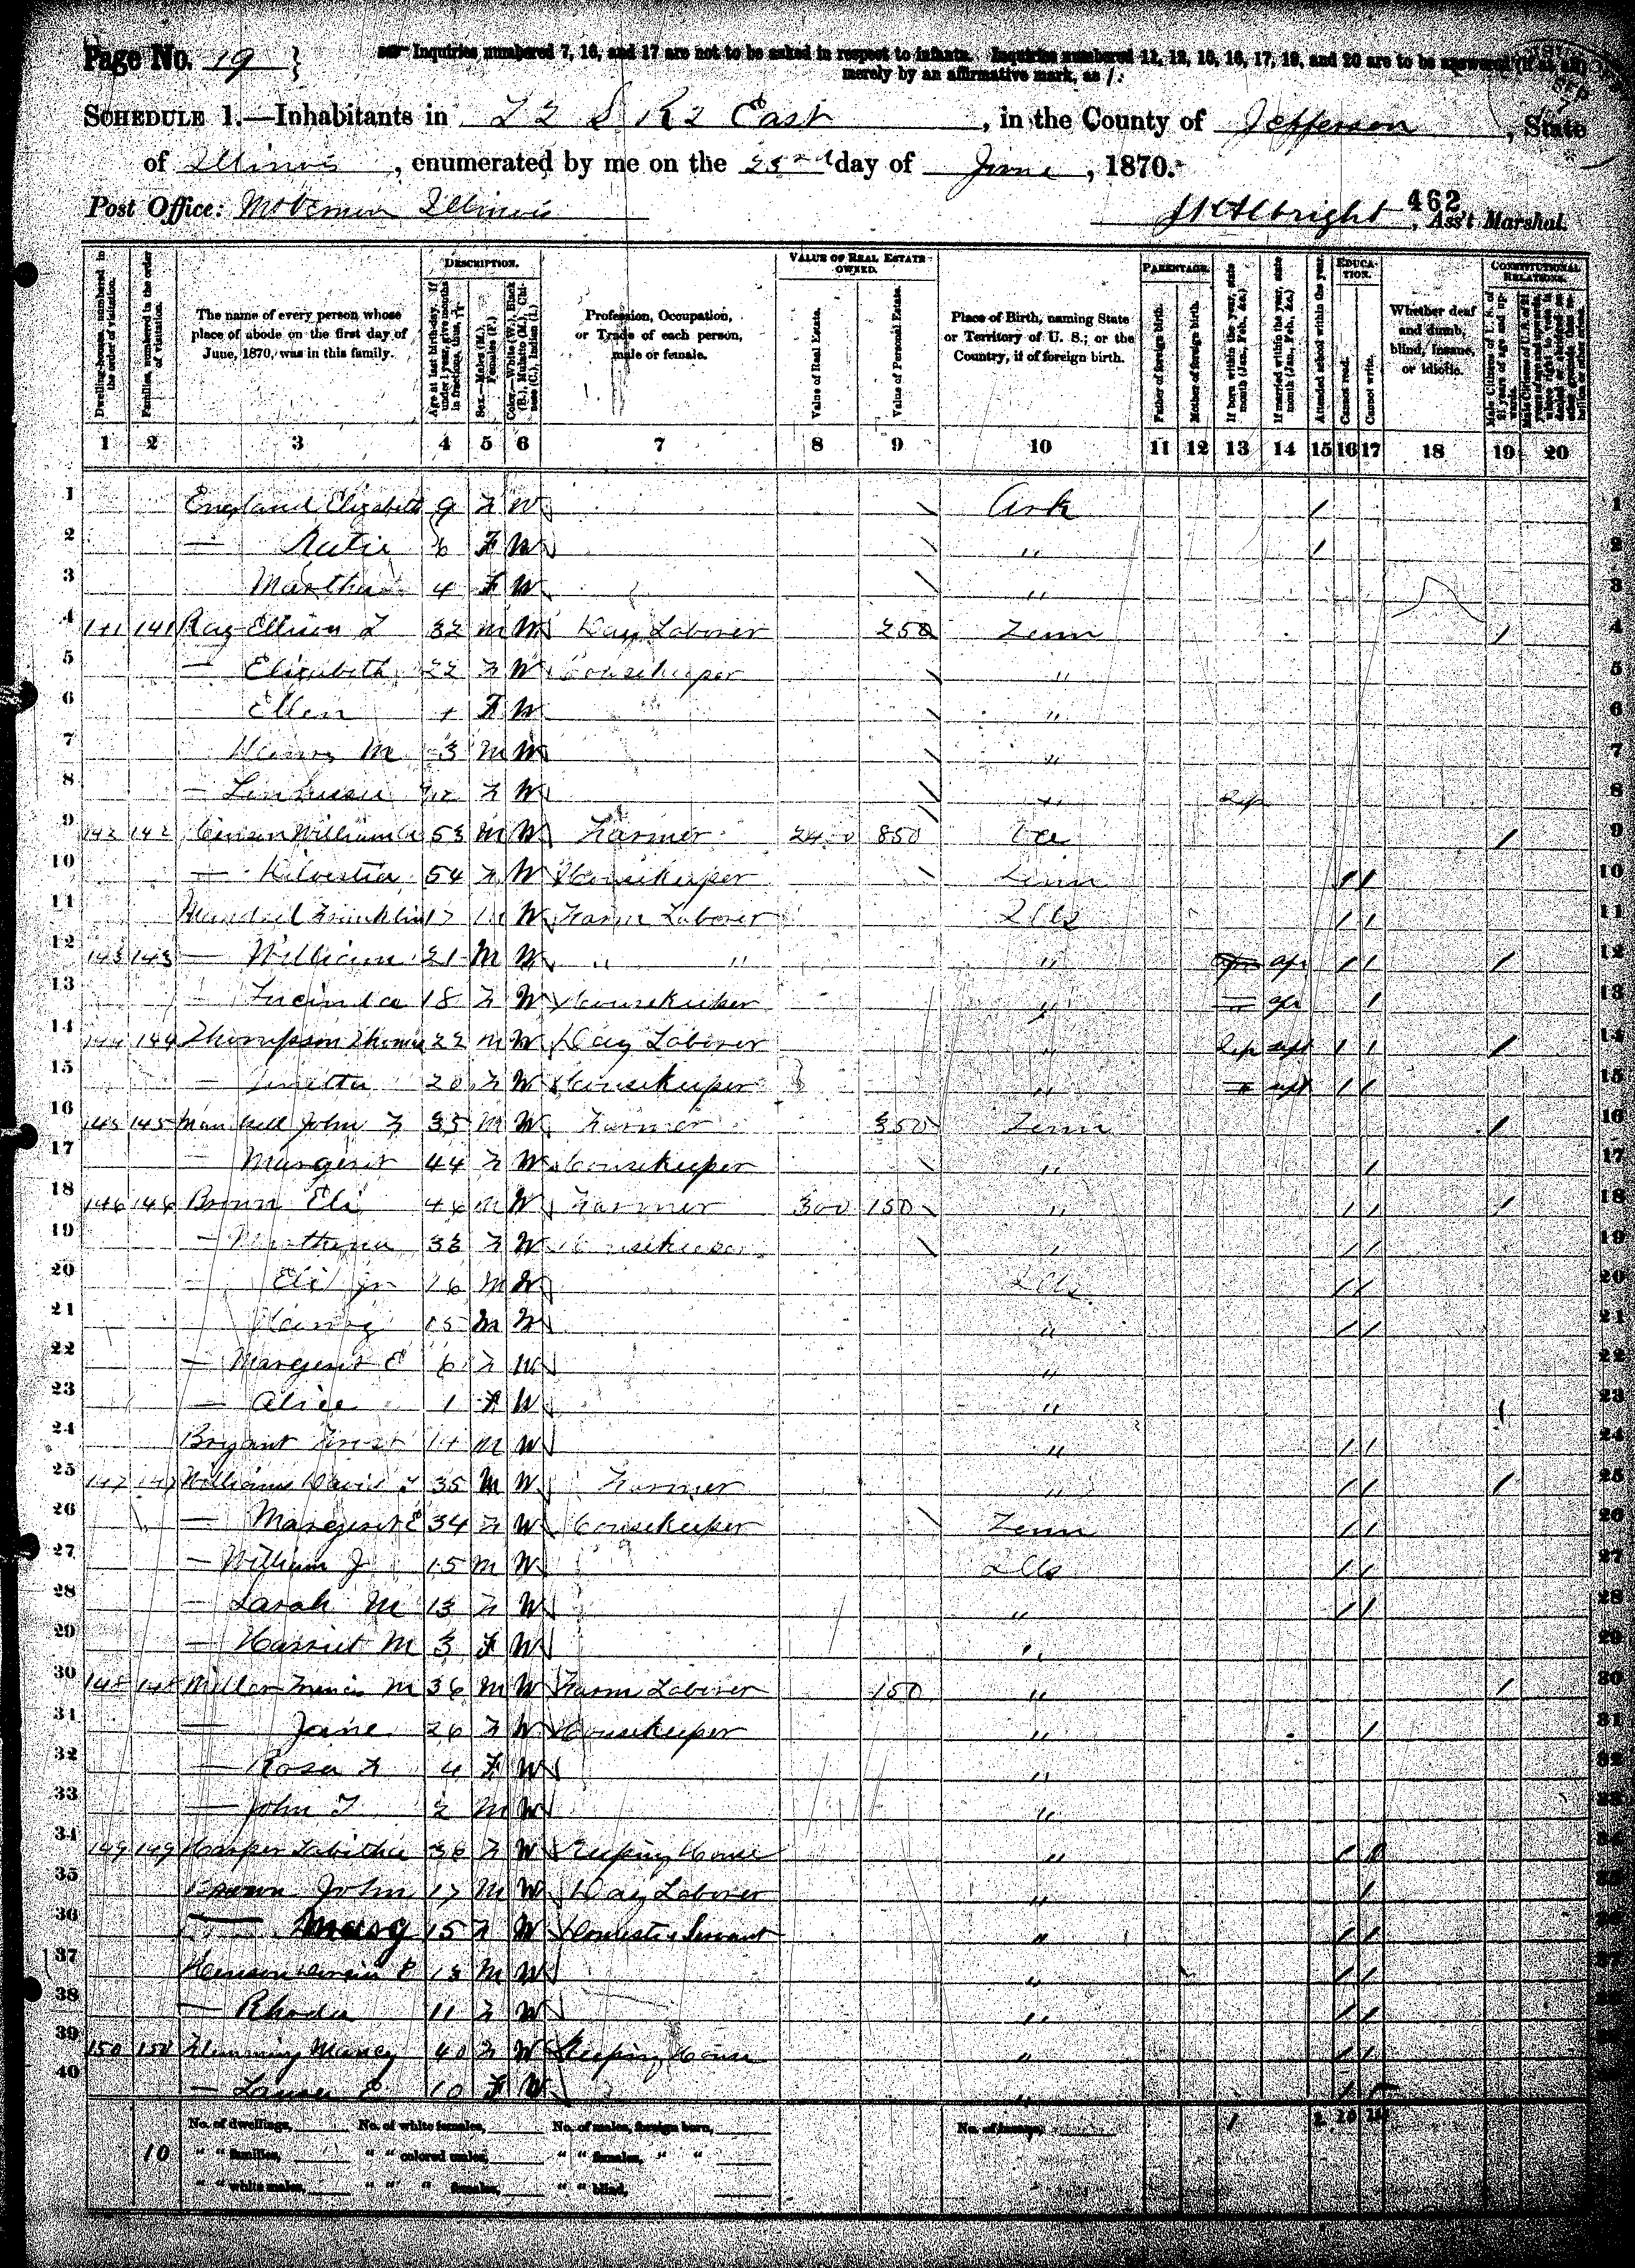 Page No. 19 } Inquiries numbered 7, 16, and 17 are not to be asked in respect to infants. Inquiries numbered 11, 12, 15, 16, 17, 19, and 20 are to be answered (if at all)
merely by an affirmative mark, as /.
SCHEDULE 1.—Inhabitants in T 2 S R 2 East, in the County of Jefferson, State
of Illinois, enumerated by me on the 23rd day of June, 1870.
Post Office: Mt Vernon Illinois
462
Albright, Ass't Marshal.
Dwelling-houses, numbered in the order of visitation.
Families, numbered in the order of visitation.
The name of every person whose place of abode on the first day of June, 1870, was in this family.
DESCRIPTION.
Age at last birth-day. If under 1 year, give months in fractions, thus, 3/12
Sex.—Males (M.), Females (F.)
Color.—White (W.), Black (B.), Mulatto (M.), Chinese (C.), Indian (I.)
Profession, Occupation, or Trade of each person, male or female.
VALUE OF REAL ESTATE OWNED.
Value of Real Estate.
Value of Personal Estate.
Place of Birth, naming State or Territory of U. S.; or the Country, if of foreign birth.
PARENTAGE.
Father of foreign birth.
Mother of foreign birth.
If born within the year, state month (Jan., Feb., &c.)
If married within the year, state month (Jan., Feb., &c.)
Attended school within the year.
EDUCATION.
Cannot read.
Cannot write.
Whether deaf and dumb, blind, insane, or idiotic.
CONSTITUTIONAL RELATIONS.
Male Citizens of U. S. of 21 years of age and upwards.
1 2 3 4 5 6 7 8 9 10 11 12 13 14 15 16 17 18 19 20
1 England Elizabeth 9 F W Ark / 1
2 — Katie 6 F W " / 2
3 Martha 4 F W " 3
4 141 141 Ray Ellison T 32 M W Day Laborer 250 Tenn / 4
5 — Elizabeth 22 F W Housekeeper " 5
6 Ellen 4 F W " 6
7 M 3 M W " 7
8 — F W " Sep 8
9 142 142 William 53 M W Farmer 2400 850 Va / 9
10 — 54 F W Housekeeper Tenn / / 10
11 Franklin 17 M W Farm Laborer Ills / / 11
12 143 143 — William 21 M W " " " apr / / / 12
13 — Lucinda 18 F W Housekeeper " apr / 13
14 144 144 Thompson Thomas 22 M W Day Laborer " Sep sept / / / 14
15 — 20 F W Housekeeper " sept / / 15
16 145 145 John F 35 M W Farmer 350 Tenn / 16
17 — Margerit 44 F W Housekeeper " / 17
18 146 146 Brown Eli 46 M W Farmer 300 150 " / / / 18
19 — 38 F W Housekeeper " / / 19
20 — Eli jr 16 M W Ills / / 20
21 15 M W " / / 21
22 — Margerit E 6 F W " 22
23 — Alice 1 F W " 23
24 Bryant 14 M W " / / 24
25 147 147 Williams David T 35 M W Farmer " / / / 25
26 — Margerit E 34 F W Housekeeper Tenn / / 26
27 — William J 15 M W Ills / / 27
28 — Sarah M 13 F W " / / 28
29 — Harriet M 3 F W " 29
30 148 148 Miller Francis M 36 M W Farm Laborer 150 " / 30
31 — Jane 26 F W Housekeeper " / 31
32 — Rosa F 4 F W " 32
33 — John T 2 M W " 33
34 149 149 Harper Tabitha 36 F W Keeping House " / / 34
35 Brown John 17 M W Day Laborer " / 35
36 — Mary 15 F W Domestic Servant " / / 36
37 Henson E 13 M W " / / 37
38 — Rhoda 11 F W " / / 38
39 150 150 Flemming Nancy 40 F W Keeping House " / / 39
40 — Laura E 10 F W " / / 40
No. of dwellings, No. of white females, No. of males, foreign born, No. of insane, 1 2 20
10 " " families, " " colored males, " " females, " "
" " white males, " " " females, " " blind,